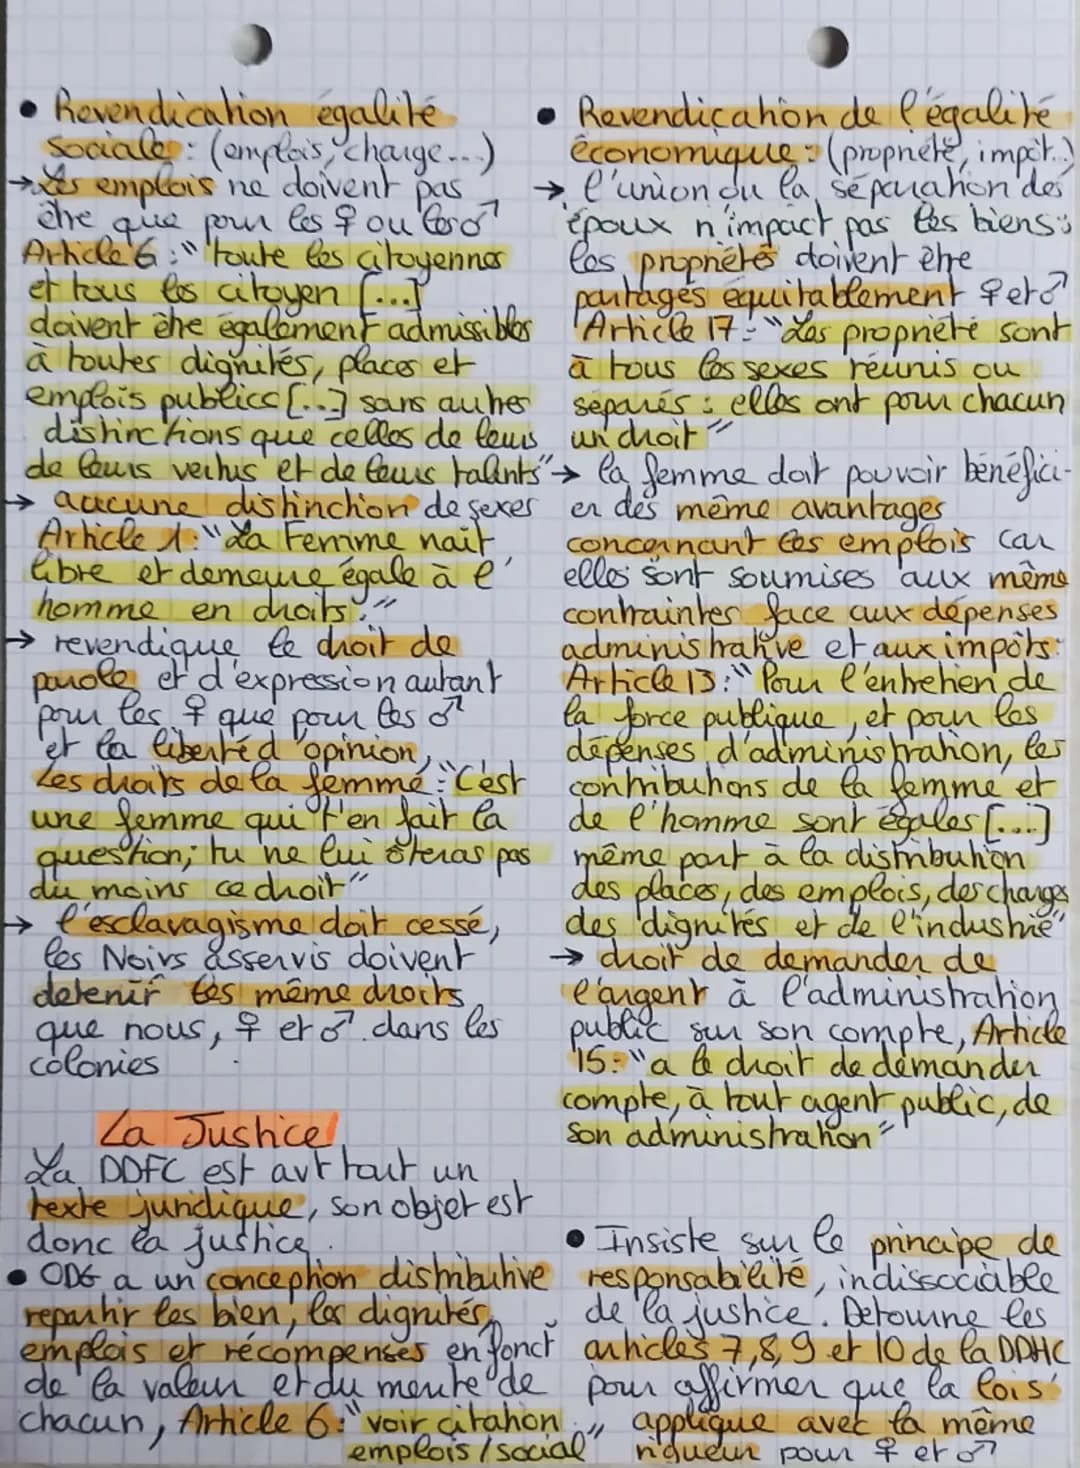 • Revendication égalité
sociale : (emplois, charge...)
→ Les emplois ne doivent pas
être que pour les ♀ ou les ♂
Article 6 : "toute les citoyennes
et tous les citoyen [...]
doivent être également admissibles
à toutes dignités, places et
emplois publics [...] sans autres
distinctions que celles de leurs
de leurs vertus et de leurs talents"
→ aucune distinction de sexes
Article 1 : "La Femme nait
libre et demeure égale à l'
homme en droits."
→ revendique le droit de
parole et d'expression autant
pour les ♀ que pour les ♂
et la liberté d'opinion,
Les droits de la femme : "C'est
une femme qui t'en fait la
question; tu ne lui ôteras pas
du moins ce droit"
→ l'esclavagisme doit cessé,
les Noirs asservis doivent
detenir les même droits
que nous, ♀ et ♂ dans les
colonies
La Justice
La DDFC est avt tout un
texte juridique, son objet est
donc la justice.
• ODG a un conception distributive
repartir les bien, les dignités,
emplois et récompenses en fonct
de la valeur et du merite de
chacun, Article 6 : "voir citation
emplois / social"
• Revendication de l'égalité
économique : (propriété, impôt..)
→ l'union ou la séparation des
époux n'impact pas les biens :
les propriétés doivent être
partagés équitablement ♀ et ♂
Article 17 : "Les propriété sont
à tous les sexes réunis ou
séparés : elles ont pour chacun
un droit"
→ la femme doit pouvoir bénéfici-
er des même avantages
concernant les emplois car
elles sont soumises aux même
contraintes face aux dépenses
administrative et aux impôts :
Article 13 : "Pour l'entretien de
la force publique, et pour les
dépenses d'administration, les
contributions de la femme et
de l'homme sont égales [...]
même part à la distribution
des places, des emplois, des charges
des dignités et de l'industrie"
→ droit de demander de
l'argent à l'administration
public sur son compte, Article
15 : "a le droit de demander
compte, à tout agent public, de
son administration"
• Insiste sur le principe de
responsabilité, indissociable
de la justice. Detourne les
articles 7, 8, 9 et 10 de la DDHC
pour affirmer que la lois'
applique avec la même
rigueur pour ♀ et ♂